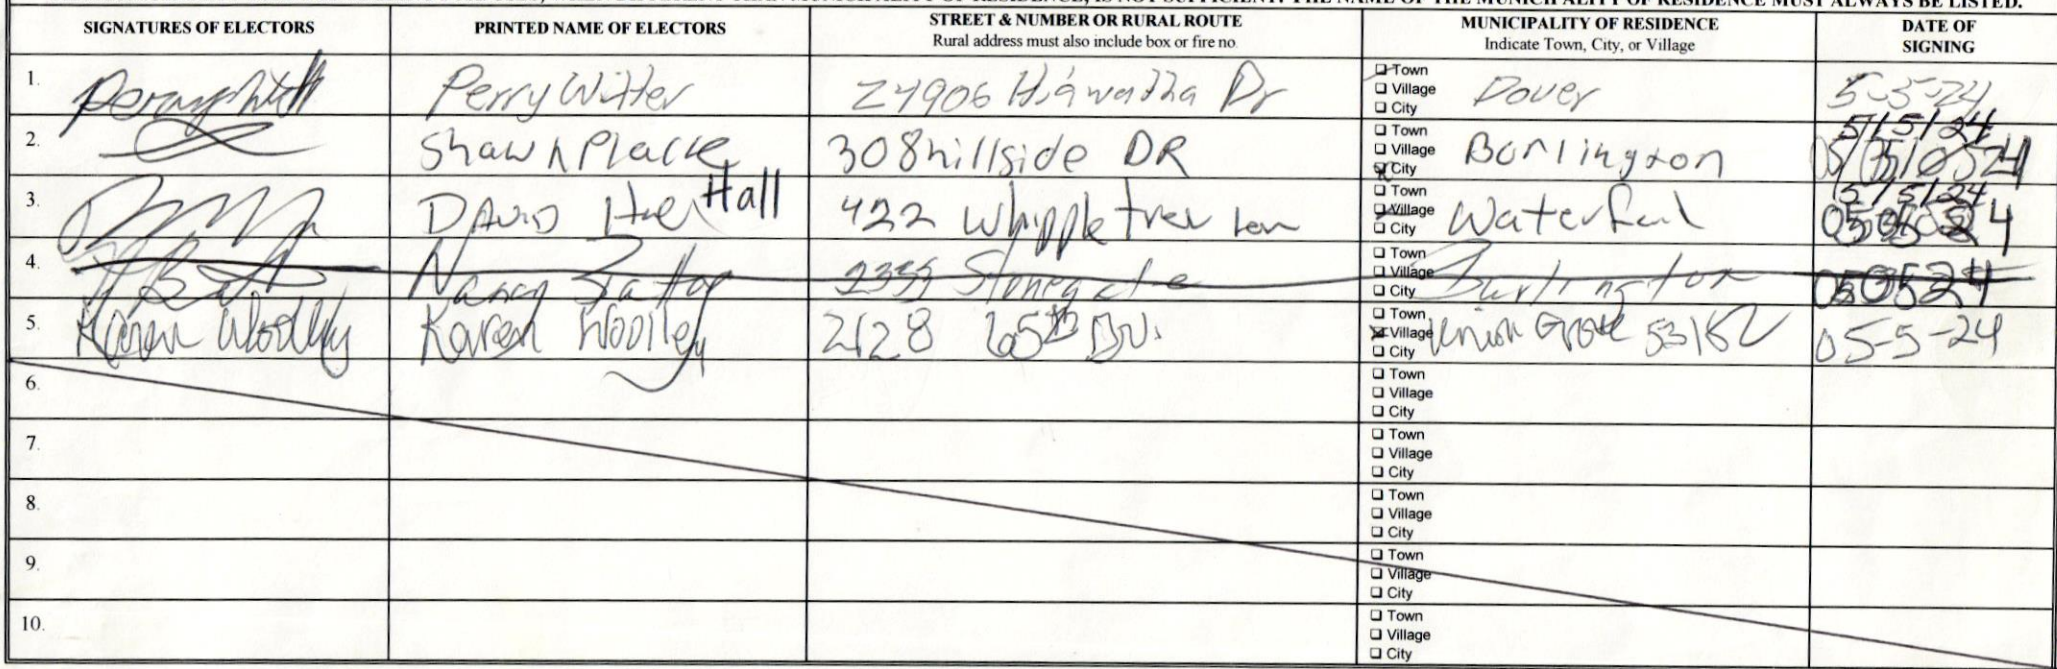 MUST ALWAYS BE LISTED.
SIGNATURES OF ELECTORS
PRINTED NAME OF ELECTORS
STREET & NUMBER OR RURAL ROUTE
Rural address must also include box or fire no.
MUNICIPALITY OF RESIDENCE
Indicate Town, City, or Village
DATE OF
SIGNING
1.
Perry Witter
24906 Hiawatha Dr
Town
Village
City
Dover
5-5-24
2.
Shawn Placke
308 hillside DR
Town
Village
City
Burlington
5/5/24
3.
DAVID Hall
422 Whippletree Ln
Town
Village
City
Waterford
5/5/24
4.
Nancy
2355 Stonegate
Town
Village
City
Burlington
050524
5.
Karen Woolley
Karen Woolley
2128 65th Dr.
Town
Village
City
Union Grove 53182
05-5-24
6.
Town
Village
City
7.
Town
Village
City
8.
Town
Village
City
9.
Town
Village
City
10.
Town
Village
City